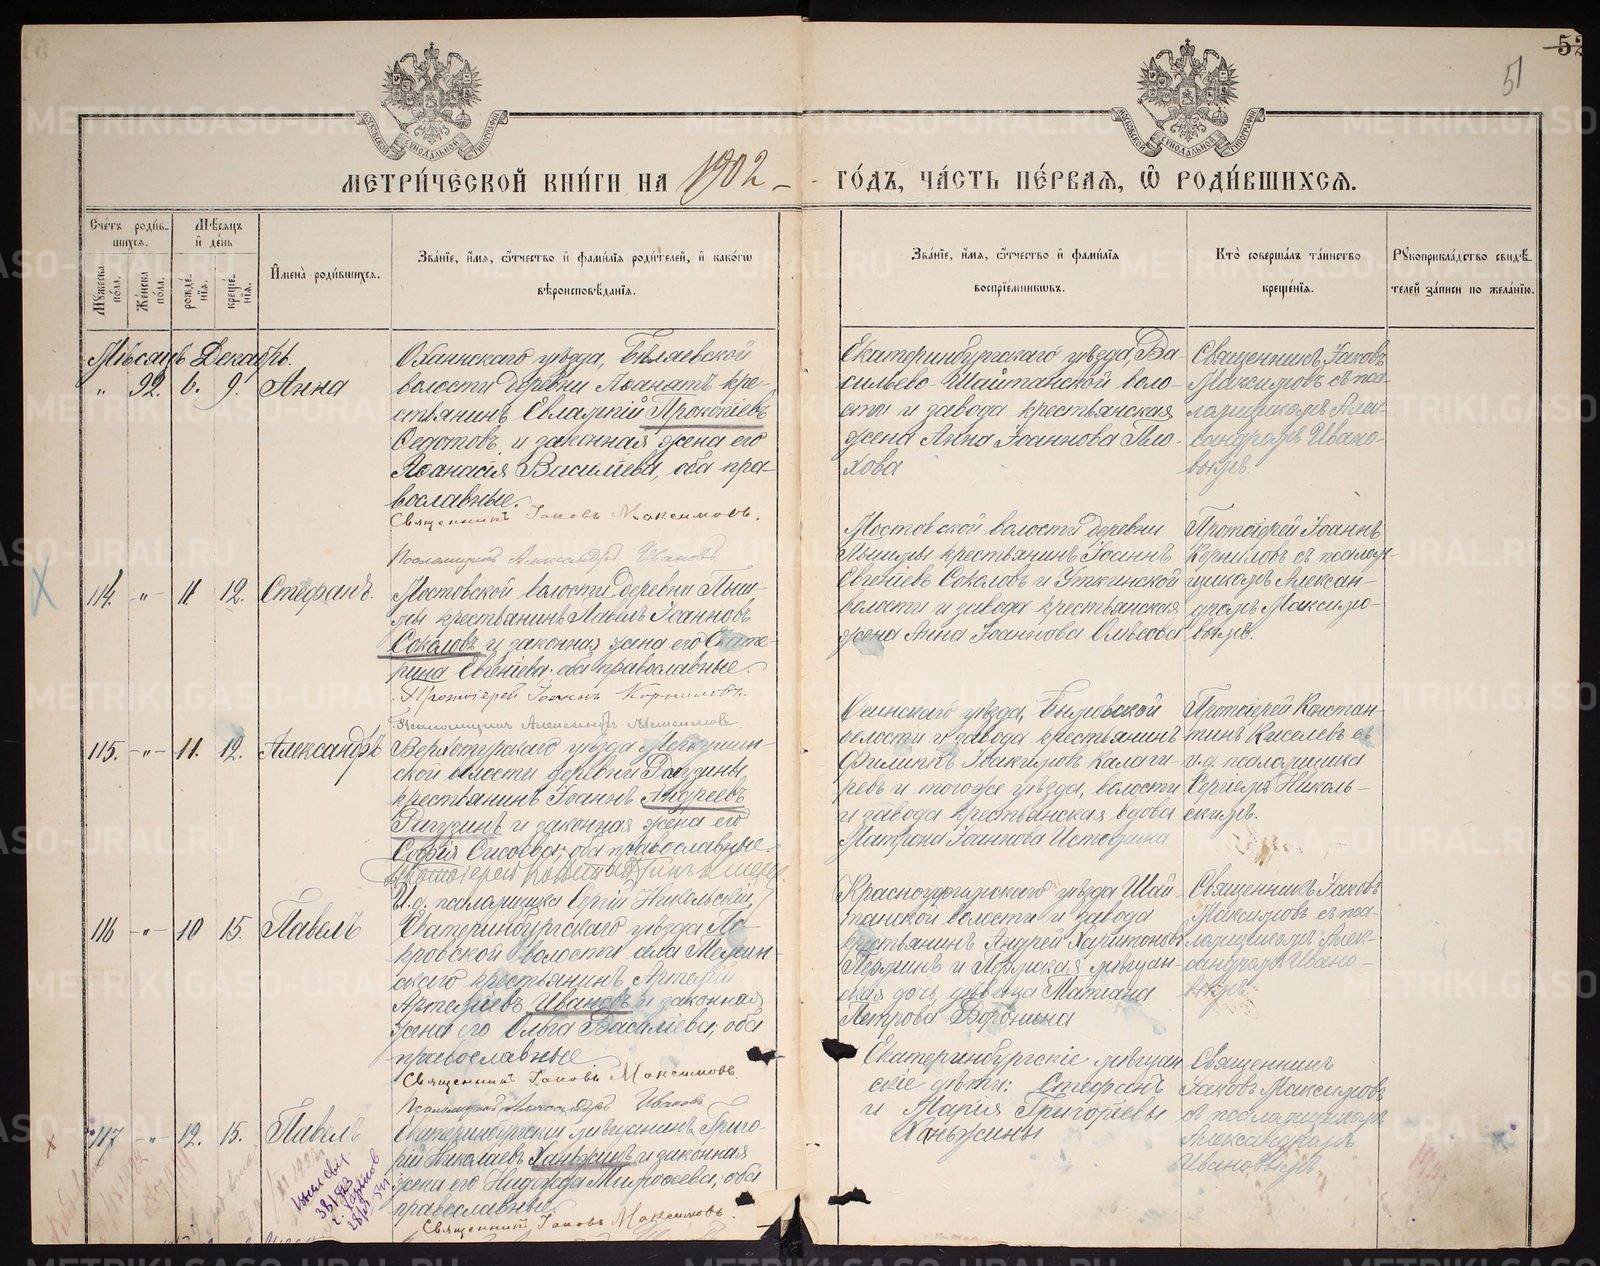 51
МЕТРИ́ЧЕСКОЙ КНИ́ГИ НА 1902
ГО́ДЪ, ЧА́СТЬ ПЕ́РВАѦ, Ѿ РОДИ́ВШИХСѦ.
Счетъ родив-
шихся.
Мѣсяцъ
и день
Мужеска пола.
Женска пола.
рожде-
нія.
креще-
нія.
Имена родившихся.
Званіе, имя, отчество и фамилія родителей, и какого
вѣроисповѣданія.
Званіе, имя, отчество и фамилія
воспріемниковъ.
Кто совершалъ таинство
крещенія.
Рукоприкладство свидѣ-
телей записи по желанію.
Мѣсяцъ Декабрь.
" 92. 6. 9. Анна
Оханскаго уѣзда, Бѣляевской
волости деревни кре-
стьянинъ Евлампій Прокопіевъ
Федотовъ и законная жена его
Аѳанасія Василіева, оба пра-
вославные.
Священникъ Іаковъ Максимовъ.
Псаломщикъ Александръ Ивановъ
Екатеринбургскаго уѣзда, Ва-
сильево-Шайтанской воло-
сти и завода крестьянская
жена Анна Іоаннова Пло-
хова
Священникъ Іаковъ
Максимовъ съ пса-
ломщикомъ Алек-
сандромъ Ивано-
вымъ.
114. -"- 11. 12. Стефанъ.
Мостовской волости деревни Пыш-
мы крестьянинъ Павелъ Іоанновъ
Соколовъ и законная жена его Екате-
рина Евгеніева, оба православные.
Протоіерей Іоаннъ Корниловъ.
Псаломщикъ Александръ Максимовъ
Мостовской волости деревни
Пышмы крестьянинъ Іоаннъ
Евгеніевъ Соколовъ и Уткинской
волости и завода крестьянская
жена Анна Іоаннова
Протоіерей Іоаннъ
Корниловъ съ псалом-
щикомъ Алексан-
дромъ Максимо-
вымъ.
115. -"- 11. 12. Александръ
Верхотурскаго уѣзда Меркушин-
ской волости деревни Рагузины
крестьянинъ Іоаннъ Андреевъ
Рагузинъ и законная жена его
Софія Сысоева, оба православные.
Протоіерей Константинъ Киселевъ
И.д. псаломщика Сергій Никольскій
Осинскаго уѣзда, Бымовской
волости и завода крестьянинъ
Филиппъ Іоакимовъ
и тогоже уѣзда, волости
и завода крестьянская вдова
Матрона Іоаннова Истомина
Протоіерей Констан-
тинъ Киселевъ съ
и.д. псаломщика
Сергіемъ Николь-
скимъ.
116 -"- 10 15. Павелъ
Екатеринбургскаго уѣзда По-
кровской волости села
крестьянинъ Артемій
Артеміевъ Ивановъ и законная
жена его Ольга Василіева, оба
православные
Священникъ Іаковъ Максимовъ
Псаломщикъ Александръ Ивановъ
Красноуфимскаго уѣзда Шай-
танской волости и завода
крестьянинъ Андрей Харитоновъ
и Пермская мѣщан-
ская дочь дѣвица Татіана
Петрова Воронина
Священникъ Іаковъ
Максимовъ съ пса-
ломщикомъ Алек-
сандромъ Ивано-
вымъ.
117 -"- 12. 15. Павелъ
Екатеринбургскій мѣщанинъ Григо-
рій Николаевъ Ханжинъ и законная
жена его Надежда Миронова, оба
православные
Священникъ Іаковъ Максимовъ.
Екатеринбургскіе мѣщан-
скіе дѣти: Стефанъ
и Марія Григорьевы
Ханжины
Священникъ
Іаковъ Максимовъ
съ псаломщикомъ
Александромъ
Ивановымъ